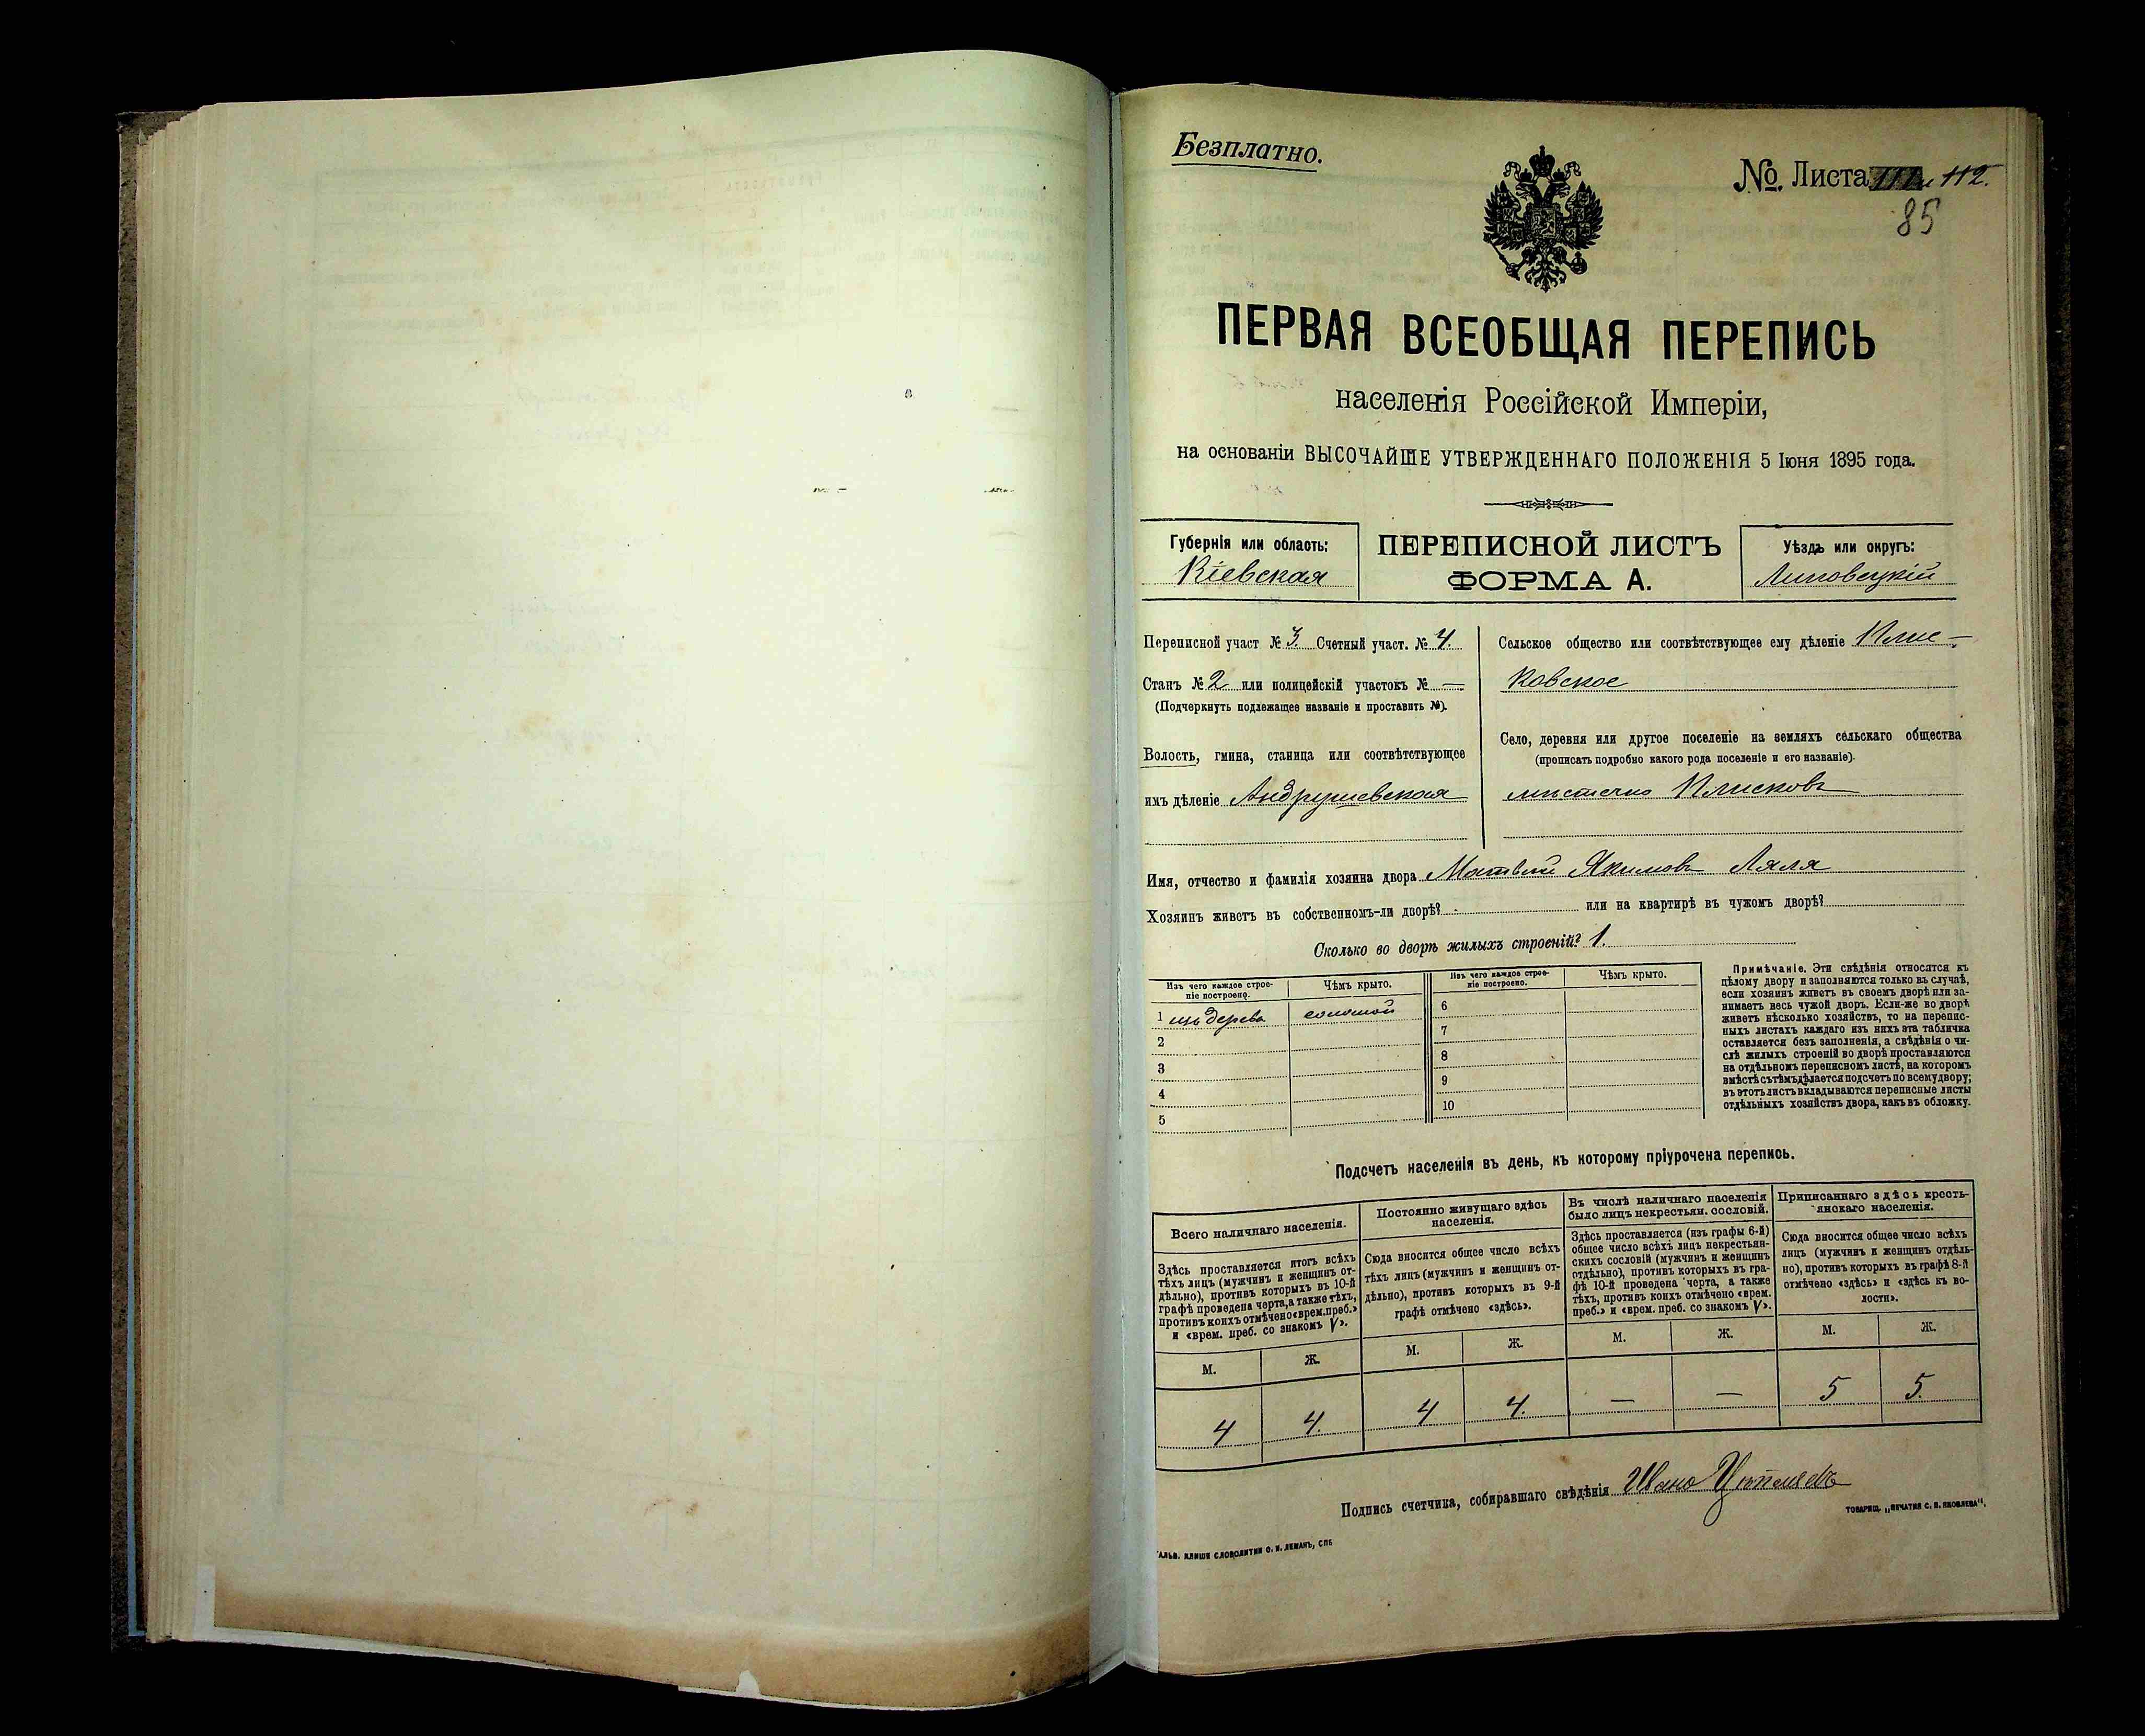 Безплатно.
№ Листа 112.
85
ПЕРВАЯ ВСЕОБЩАЯ ПЕРЕПИСЬ
населенія Россійской Имперіи,
на основаніи ВЫСОЧАЙШЕ УТВЕРЖДЕННАГО ПОЛОЖЕНІЯ 5 Іюня 1895 года.
Губернія или область:
Кіевская
ПЕРЕПИСНОЙ ЛИСТЪ
ФОРМА А.
Уѣздъ или округъ:
Липовецкій
Переписной участ № 3. Счетный участ. № 4.
Станъ № 2 или полицейскій участокъ № —
(Подчеркнуть подлежащее названіе и проставить №).
Волость, гмина, станица или соотвѣтствующее
имъ дѣленіе Андрушевская
Сельское общество или соотвѣтствующее ему дѣленіе Плис-
ковское
Село, деревня или другое поселеніе на земляхъ сельскаго общества
(прописать подробно какого рода поселеніе и его названіе).
мѣстечко Плисковъ
Имя, отчество и фамилія хозяина двора Матвѣй Якимовъ Ляля
Хозяинъ живетъ въ собственномъ-ли дворѣ? или на квартирѣ въ чужомъ дворѣ?
Сколько во дворѣ жилыхъ строеній? 1.
Изъ чего каждое строе-
ніе построено.
Чѣмъ крыто.
1 изъ дерева соломой
2
3
4
5
Изъ чего каждое строе-
ніе построено.
Чѣмъ крыто.
6
7
8
9
10
Примѣчаніе. Эти свѣдѣнія относятся къ
цѣлому двору и заполняются только въ случаѣ,
если хозяинъ живетъ въ своемъ дворѣ или за-
нимаетъ весь чужой дворъ. Если-же во дворѣ
живетъ нѣсколько хозяйствъ, то на перепис-
ныхъ листахъ каждаго изъ нихъ эта табличка
оставляется безъ заполненія, а свѣдѣнія о чи-
слѣ жилыхъ строеній во дворѣ проставляются
на отдѣльномъ переписномъ листѣ, на которомъ
вмѣстѣ съ тѣмъ дѣлается подсчетъ по всему двору;
въ этотъ листъ вкладываются переписные листы
отдѣльныхъ хозяйствъ двора, какъ въ обложку.
Подсчетъ населенія въ день, къ которому пріурочена перепись.
Всего наличнаго населенія.
Здѣсь проставляется итогъ всѣхъ
тѣхъ лицъ (мужчинъ и женщинъ от-
дѣльно), противъ которыхъ въ 10-й
графѣ проведена черта, а также тѣхъ,
противъ коихъ отмѣчено «врем. преб.»
и «врем. преб. со знакомъ V».
М. Ж.
4 4.
Постоянно живущаго здѣсь
населенія.
Сюда вносится общее число всѣхъ
тѣхъ лицъ (мужчинъ и женщинъ от-
дѣльно), противъ которыхъ въ 9-й
графѣ отмѣчено «здѣсь».
М. Ж.
4 4.
Въ числѣ наличнаго населенія
было лицъ некрестьян. сословій.
Здѣсь проставляется (изъ графы 6-й)
общее число всѣхъ лицъ некрестьян-
скихъ сословій (мужчинъ и женщинъ
отдѣльно), противъ которыхъ въ гра-
фѣ 10-й проведена черта, а также
тѣхъ, противъ коихъ отмѣчено «врем.
преб.» и «врем. преб. со знакомъ V».
М. Ж.
— —
Приписаннаго здѣсь кресть-
янскаго населенія.
Сюда вносится общее число всѣхъ
лицъ (мужчинъ и женщинъ отдѣль-
но), противъ которыхъ въ графѣ 8-й
отмѣчено «здѣсь» и «здѣсь къ во-
лости».
М. Ж.
5 5.
Подпись счетчика, собиравшаго свѣдѣнія
ТОВАРИЩ. „ПЕЧАТНЯ С. П. ЯКОВЛЕВА“.
ГАЛЬВ. КЛИШЕ СЛОВОЛИТНИ О. И. ЛЕМАНЪ, СПБ